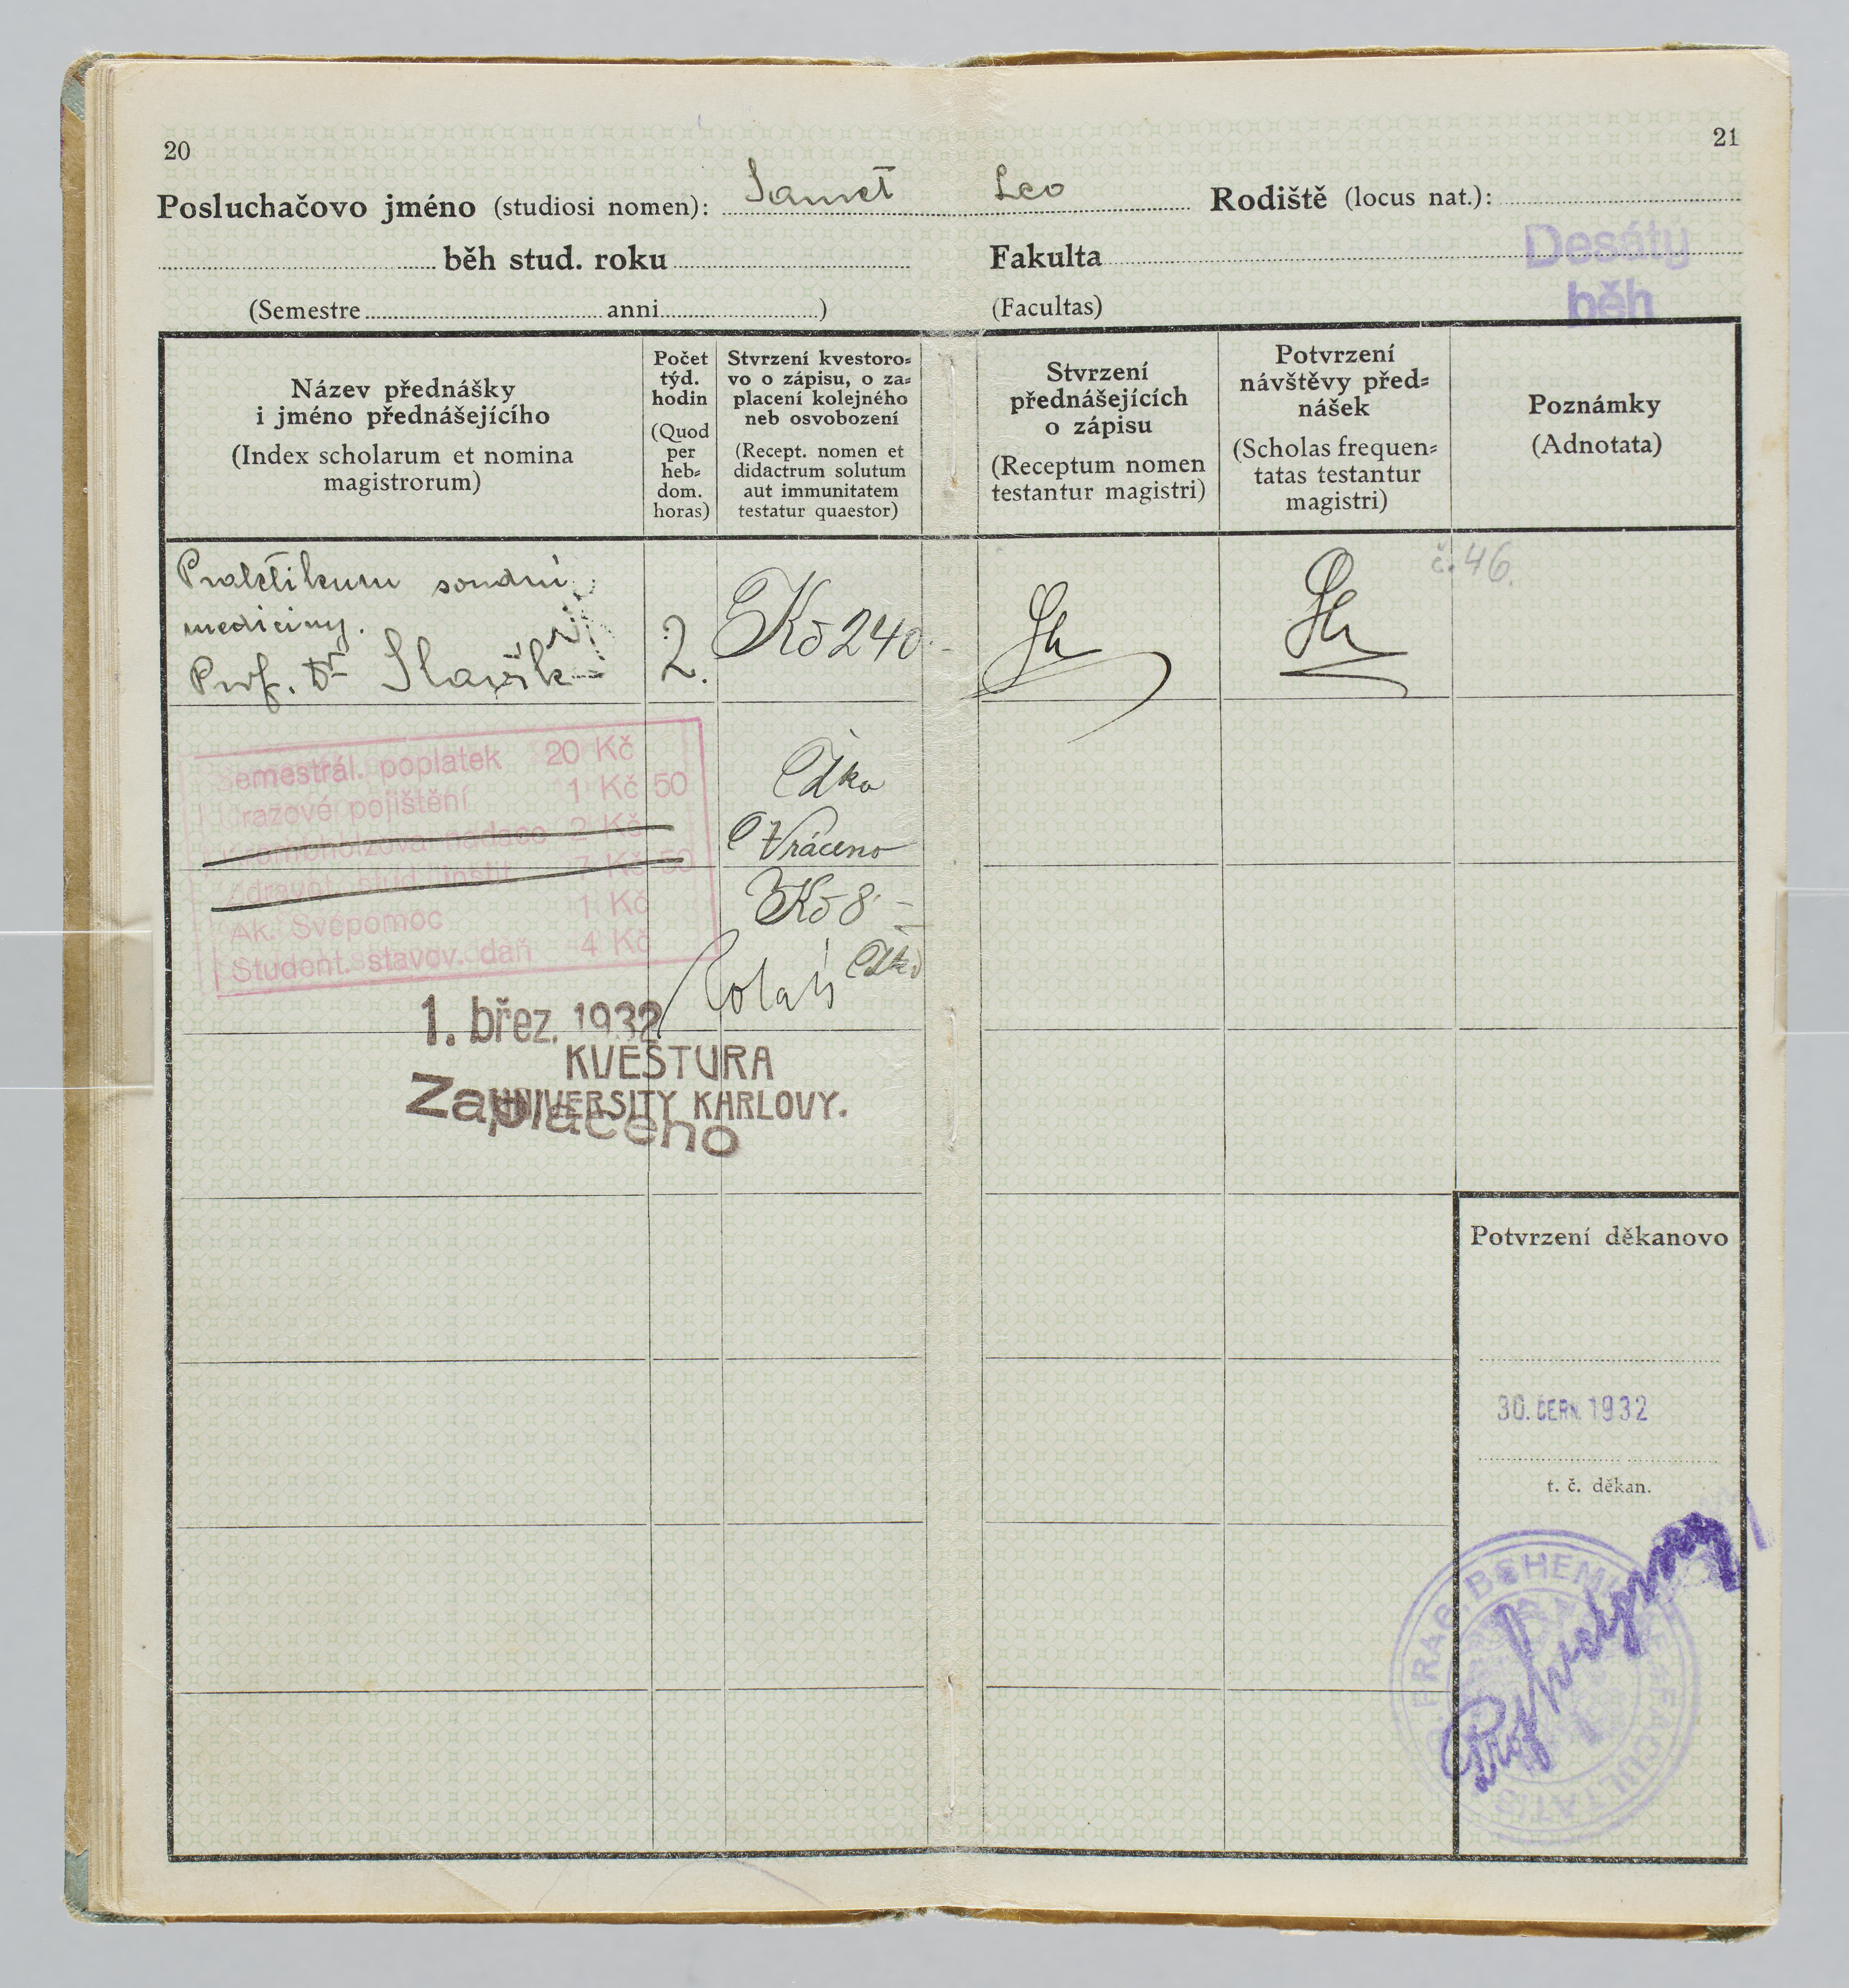 20
21
Posluchačovo jméno (studiosi nomen): Samet Leo Rodiště (locus nat.):
běh stud. roku Fakulta Desátý
(Semestre anni ) (Facultas) běh
Název přednášky
i jméno přednášejícího
(Index scholarum et nomina
magistrorum)
Počet
týd.
hodin
(Quod
per
heb=
dom.
horas)
Stvrzení kvestoro=
vo o zápisu, o za=
placení kolejného
neb osvobození
(Recept. nomen et
didactrum solutum
aut immunitatem
testatur quaestor)
Stvrzení
přednášejících
o zápisu
(Receptum nomen
testantur magistri)
Potvrzení
návštěvy před=
nášek
(Scholas frequen=
tatas testantur
magistri)
Poznámky
(Adnotata)
Praktikum soudní
mediciny.
Prof. Dr Slavík
2.
Kč 240.-
č. 46.
Semestrál. poplatek 20 Kč
Úrazové pojištění 1 Kč 50
Krombholzova nadace 2 Kč
Zdravot. stud. instit. 7 Kč 50
Ak. Svépomoc 1 Kč
Student. stavov. daň 4 Kč
Vráceno
Kč 8.-
1. břez. 1932
KVESTURA
UNIVERSITY KARLOVY.
Zaplaceno
Potvrzení děkanovo
30. ČERV. 1932
t. č. děkan.